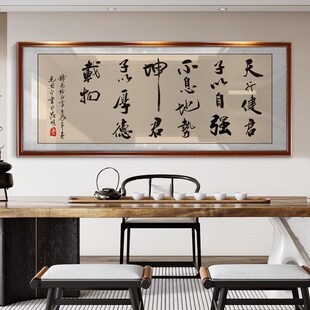 天行健君
子以自强
不息地势
坤君
子以厚德
載物